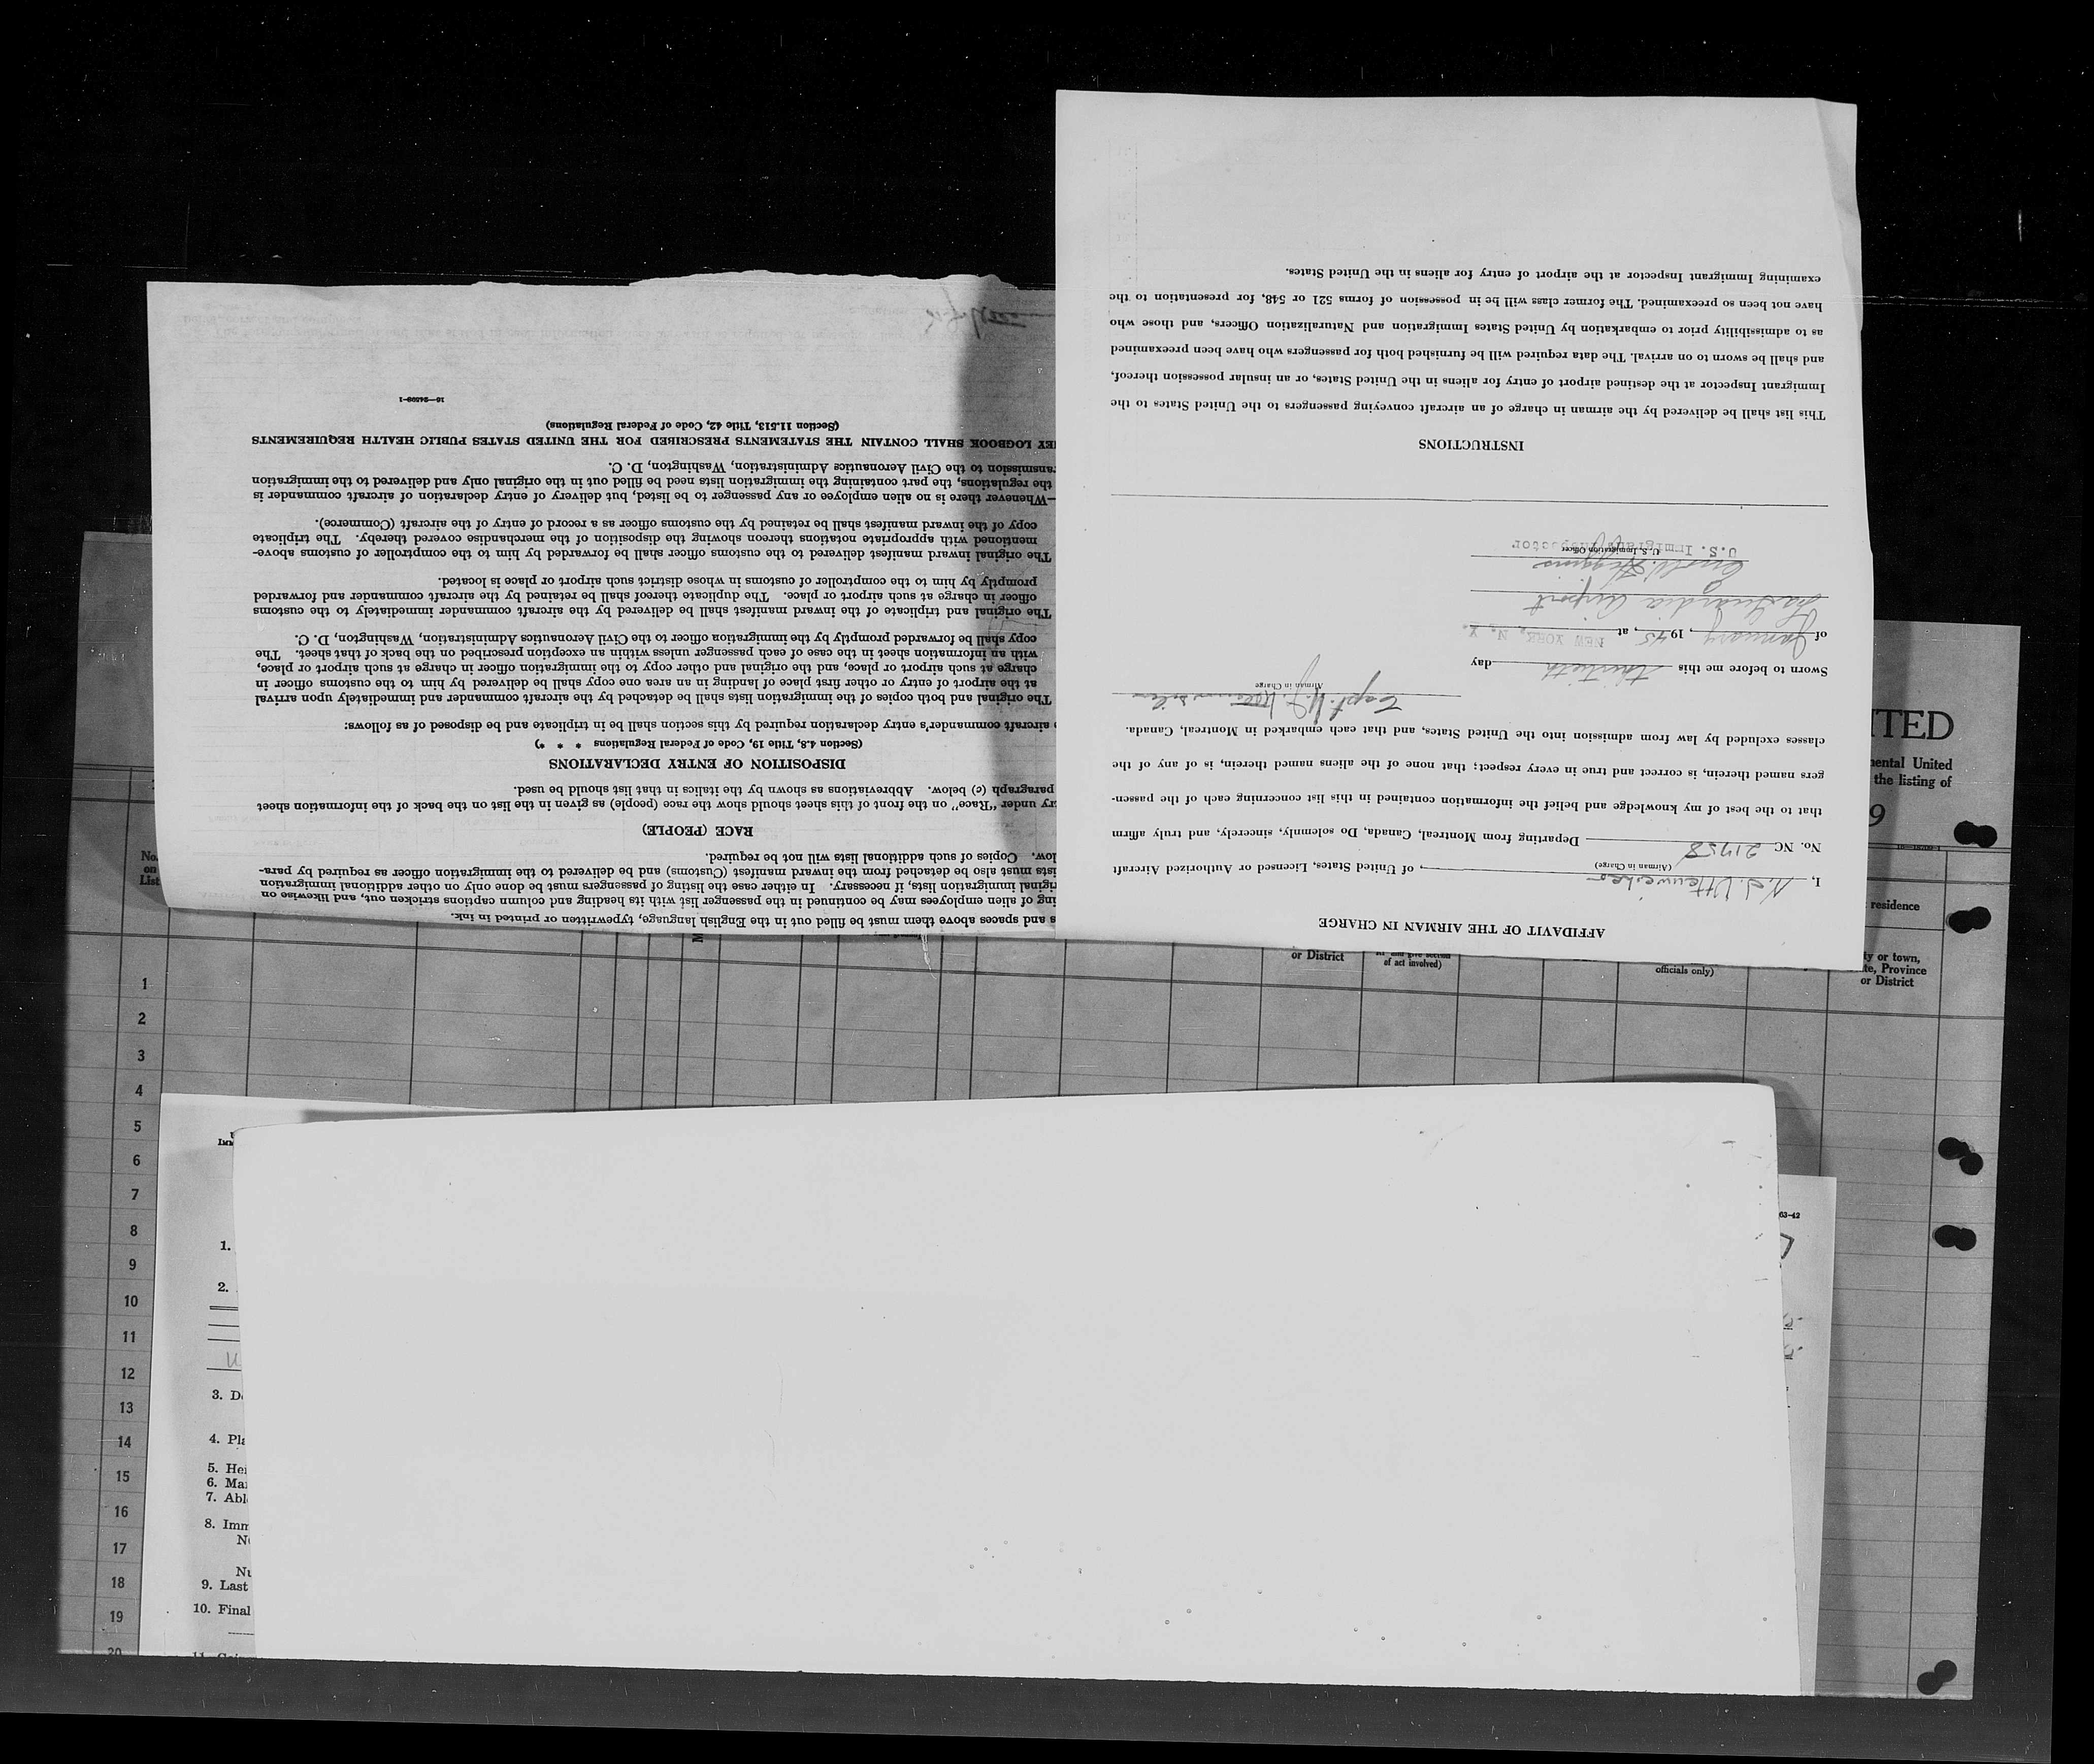 AFFIDAVIT OF THE AIRMAN IN CHARGE
I, , of United States, Licensed or Authorized Aircraft
(Airman in Charge)
No. NC 21758 Departing from Montreal, Canada, Do solemnly, sincerely, and truly affirm
that to the best of my knowledge and belief the information contained in this list concerning each of the passen-
gers named therein, is correct and true in every respect; that none of the aliens named therein, is of any of the
classes excluded by law from admission into the United States, and that each embarked in Montreal, Canada.
Capt.
Airman in Charge
Sworn to before me this thirtieth day
of January, 1945, at NEW YORK, N. Y.
LaGuardia Airport
U. S. Immigration Officer
U.S. Immigrant Inspector
INSTRUCTIONS
This list shall be delivered by the airman in charge of an aircraft conveying passengers to the United States to the
Immigrant Inspector at the destined airport of entry for aliens in the United States, or an insular possession thereof,
and shall be sworn to on arrival. The data required will be furnished both for passengers who have been preexamined
as to admissibility prior to embarkation by United States Immigration and Naturalization Officers, and those who
have not been so preexamined. The former class will be in possession of forms 521 or 548, for presentation to the
examining Immigrant Inspector at the airport of entry for aliens in the United States.
s and spaces above them must be filled out in the English language, typewritten or printed in ink.
ing of alien employees may be continued in the passenger list with its heading and column captions stricken out, and likewise on
riginal immigration lists, if necessary. In either case the listing of passengers must be done only on other additional immigration
ists must also be detached from the inward manifest (Customs) and be delivered to the immigration officer as required by para-
low. Copies of such additional lists will not be required.
RACE (PEOPLE)
ry under "Race" on the front of this sheet should show the race (people) as given in the list on the back of the information sheet
paragraph (c) below. Abbreviations as shown by the italics in that list should be used.
DISPOSITION OF ENTRY DECLARATIONS
(Section 4.8, Title 19, Code of Federal Regulations * * *)
e aircraft commander's entry declaration required by this section shall be in triplicate and be disposed of as follows:
The original and both copies of the immigration lists shall be detached by the aircraft commander and immediately upon arrival
at the airport of entry or other first place of landing in an area one copy shall be delivered by him to the customs officer in
charge at such airport or place, and the original and other copy to the immigration officer in charge at such airport or place,
with an information sheet in the case of each passenger unless within an exception prescribed on the back of that sheet. The
copy shall be forwarded promptly by the immigration officer to the Civil Aeronautics Administration, Washington, D. C.
The original and triplicate of the inward manifest shall be delivered by the aircraft commander immediately to the customs
officer in charge at such airport or place. The duplicate thereof shall be retained by the aircraft commander and forwarded
promptly by him to the comptroller of customs in whose district such airport or place is located.
The original inward manifest delivered to the customs officer shall be forwarded by him to the comptroller of customs above-
mentioned with appropriate notations thereon showing the disposition of the merchandise covered thereby. The triplicate
copy of the inward manifest shall be retained by the customs officer as a record of entry of the aircraft (Commerce).
—Whenever there is no alien employee or any passenger to be listed, but delivery of entry declaration of aircraft commander is
the regulations, the part containing the immigration lists need be filled out in the original only and delivered to the immigration
ansmission to the Civil Aeronautics Administration, Washington, D. C.
EY LOGBOOK SHALL CONTAIN THE STATEMENTS PRESCRIBED FOR THE UNITED STATES PUBLIC HEALTH REQUIREMENTS
(Section 11.513, Title 42, Code of Federal Regulations)
16—24599-1
ITED
nental United
the listing of
9
residence
No.
on
List
or District
of act involved)
officials only)
ty or town,
te, Province
or District
1
2
3
4
5
6
7
8
9
10
11
12
13
14
15
16
17
18
19
20
63-42
1.
2.
3. D
4. Pla
5. Hei
6. Mar
7. Abl
8. Imm
Nu
9. Last
10. Final